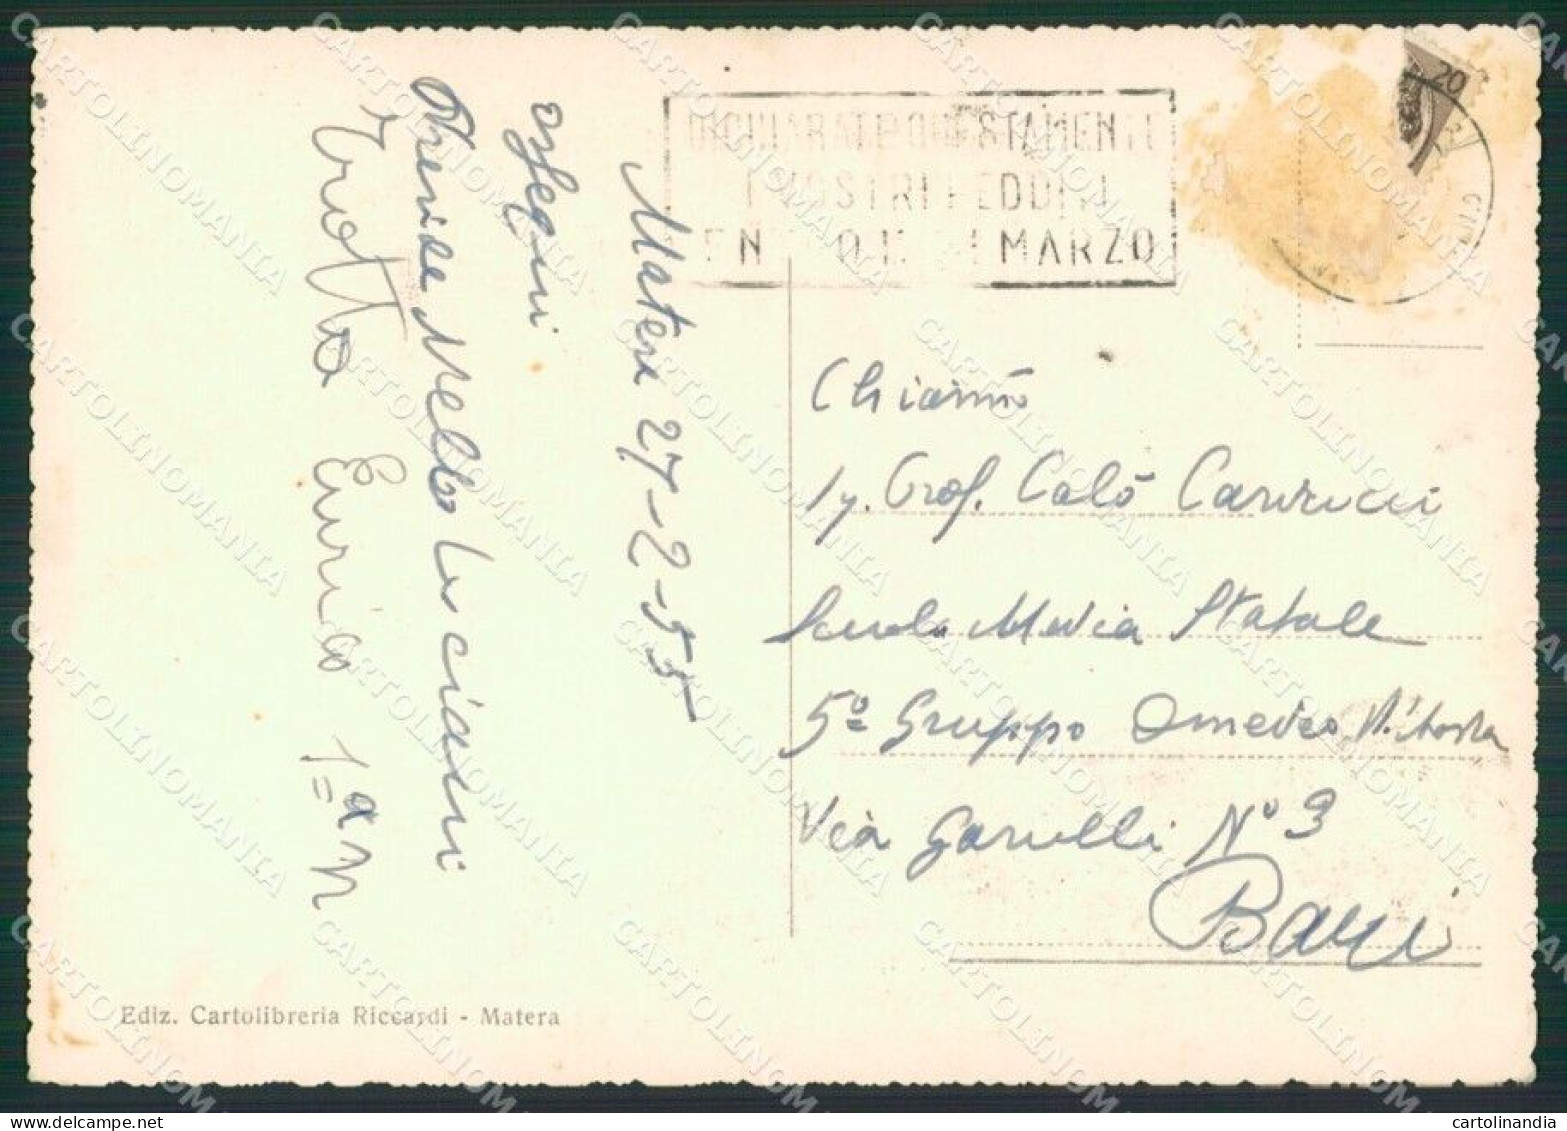 20
DICHIARATE ONESTAMENTE
I VOSTRI REDDITI
EN O IL 31 MARZO
Matera 27-2-55
ossequi
Preside Nello Lo ciani
Trotta Enrico 1ª N
Chiar.mo
Sig. Prof. Calò Carducci
Scuola Media Statale
5º Gruppo Amedeo d'Aosta
Via Garulli Nº 3
Bari
Ediz. Cartolibreria Riccardi - Matera
CARTOLINOMANIA
cartolinandia